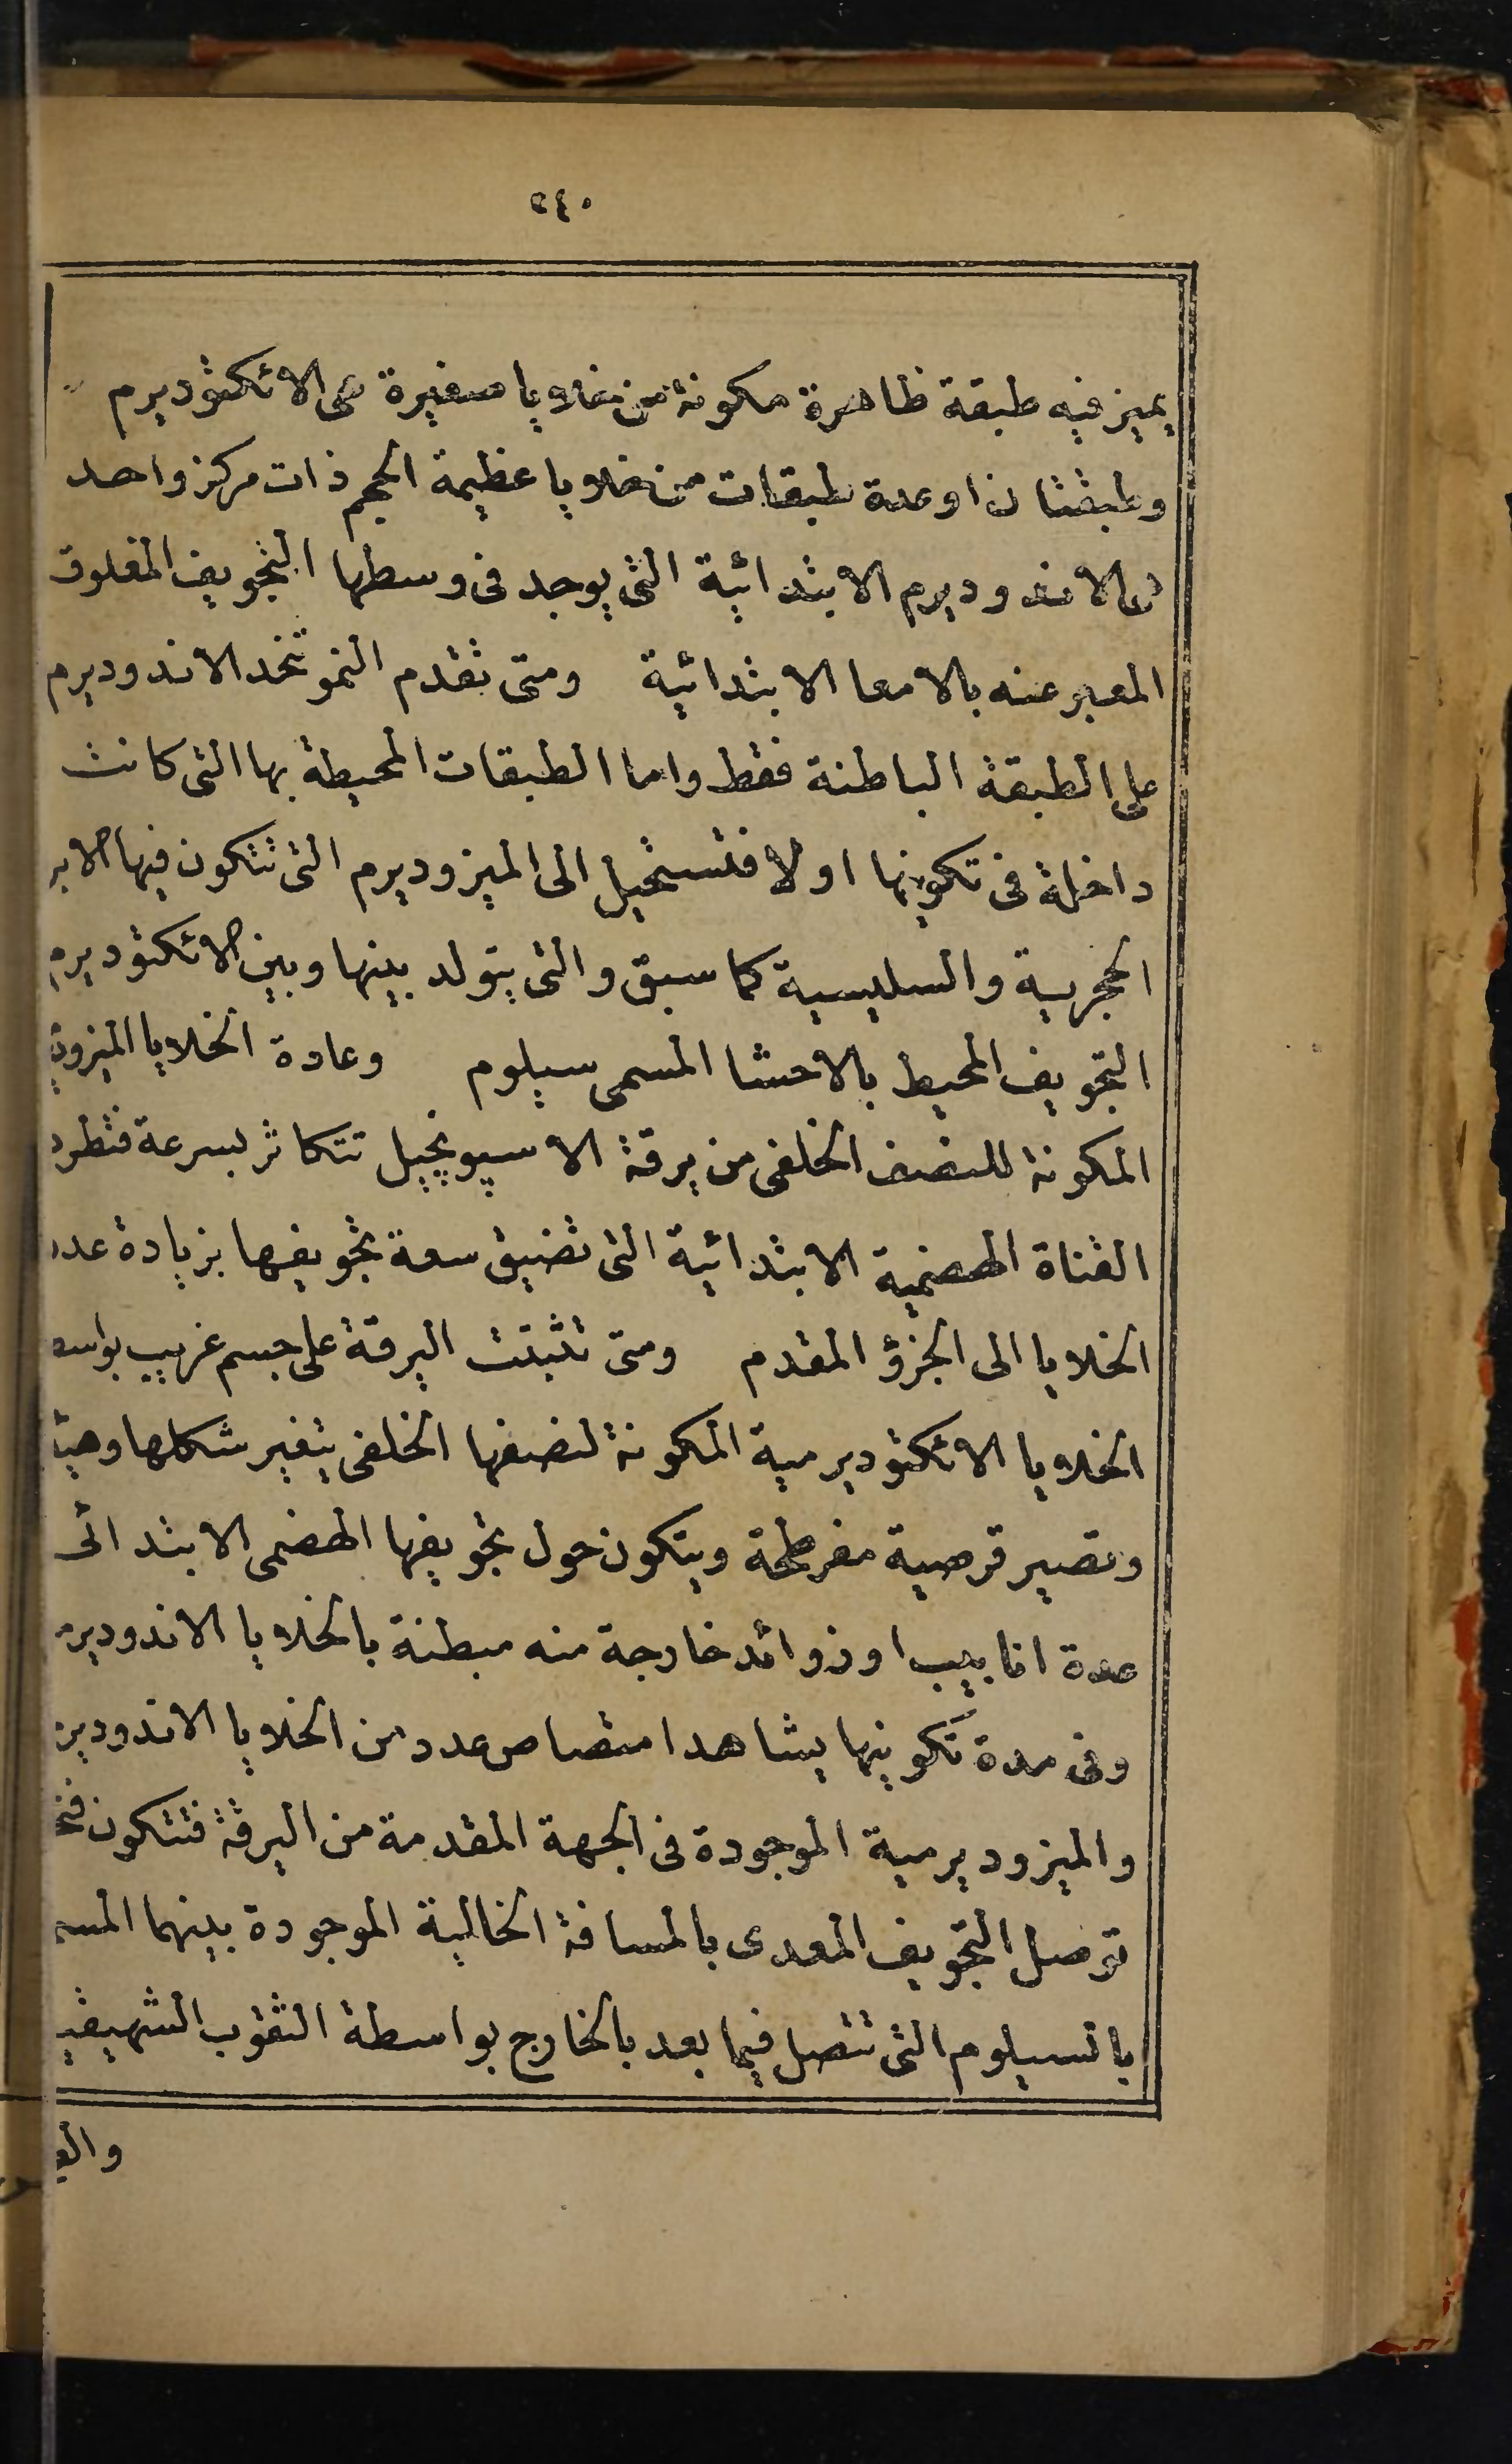 ٢٤٠
يميز فيه طبقة ظاهرة مكونة من خلايا صغيرة هى الائكتوديرم
وطبقتان او عدة طبقات من خلايا عظيمة الحجم ذات مركز واحد
هى الاندوديرم الابتدائية التى يوجد فى وسطها التجويف المغلوق
المعبر عنه بالامعا الابتدائية ومتى تقدم النمو تتخد الاندوديرم
على الطبقة الباطنة فقط واما الطبقات المحيطة بها التى كانت
داخلة فى تكوينها اولا فتستحيل الى الميزوديرم التى تتكون فيها الابر
الحجرية والسليسية كما سبق والتى يتولد بينها وبين الائكتوديرم
التجويف المحيط بالاحشا المسمى سيلوم وعادة الخلايا
المكونة للنصف الخلفى من يرقة الاسپونچيل تتكاثر بسرعة فتطرد
القناة الهضمية الابتدائية التى تضيق سعة تجويفها بزيادة عدد
الخلايا الى الجزؤ المقدم ومتى تثبتت اليرقة على جسم غريب
الخلايا الائكتوديرمية المكونة لنصفها الخلفى يتغير شكلها
وتصير قرصية مفرطحة ويتكون حول تجويفها الهضمى الابتدائى
عدة انابيب او زوائد خارجة منه مبطنة بالخلايا
وفى مدة تكوينها يشاهد امتصاص عدد من الخلايا
والميزوديرمية الموجودة فى الجهة المقدمة من اليرقة فتتكون
توصل التجويف المعدى بالمسافة الخالية الموجودة بينهما
بالسيلوم التى تتصل فيما بعد بالخارج بواسطة الثقوب